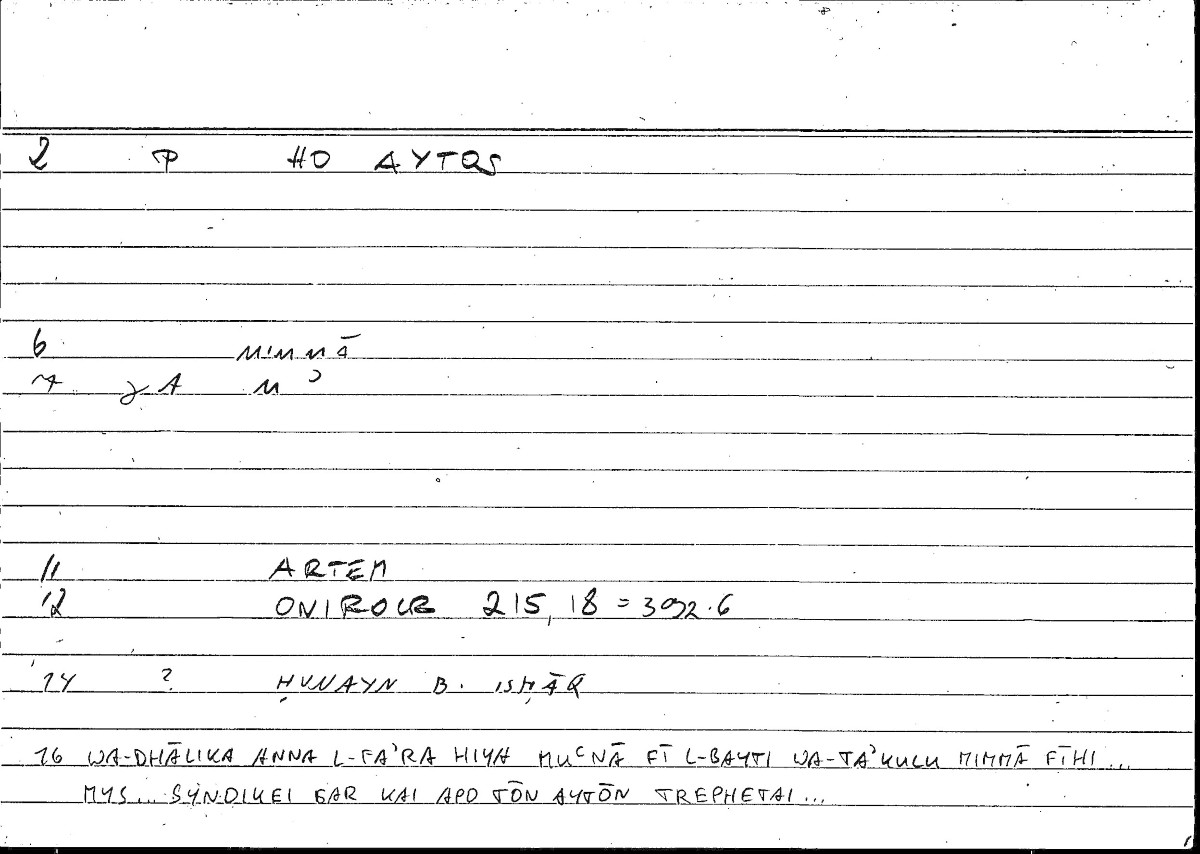 2 P HO AYTOS
6 MIMMĀ
7 γA M ʾ
11 ARTEM
12 ONIROCR 215, 18 = 392.6
14 ? ḤUNAYN B. ISḤĀQ
16 WA-DHĀLIKA ANNA L-FAʾRA HIYA MUʿNĀ FĪ L-BAYTI WA-TAʾKULU MIMMĀ FĪHI...
MYS... SYNOIKEI GAR KAI APO TŌN AYTŌN TREPHETAI...